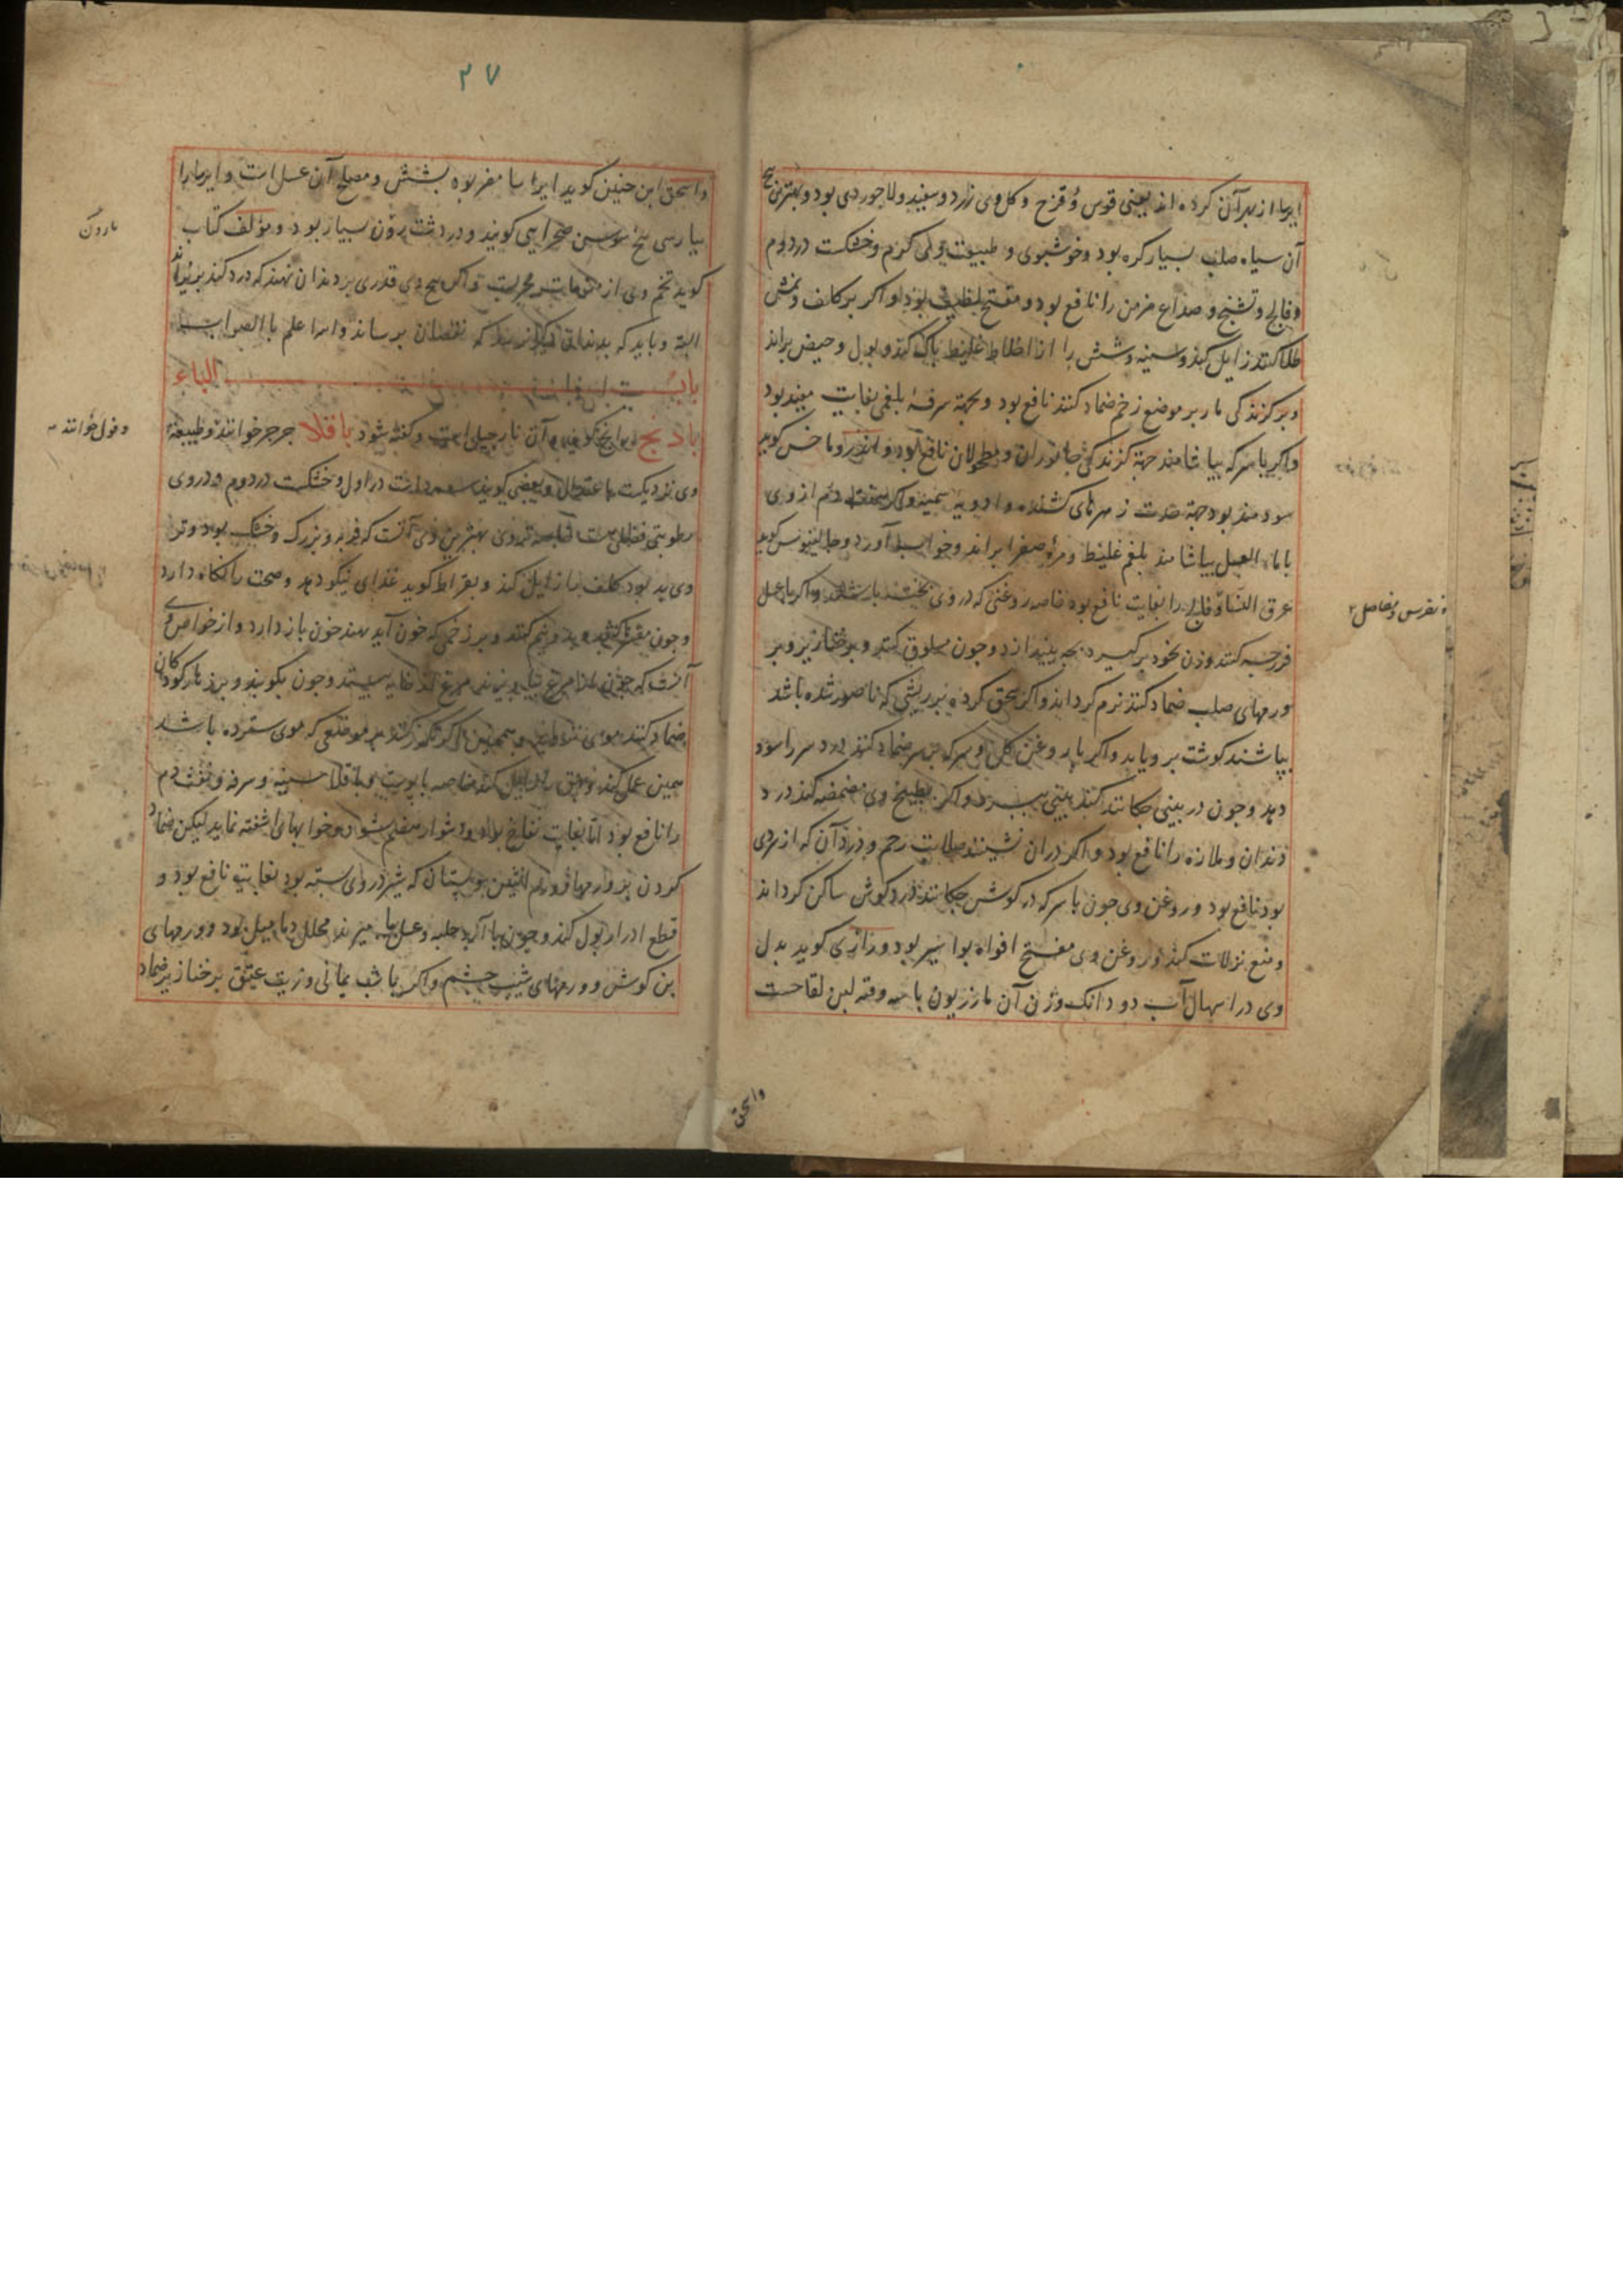 ایرسا از بهر آن کرده اند یعنی قوس و قزح و کل وی زرد و سفید و لاجوردی بود و بهترین
آن سیاه صلب بسیار کره بود و خوشبوی و طبیعت وی کرم و خشکست در دوم
و فالج و تشنج و صداع مزمن را نافع بود و مفتح بود و اکر بر کلف و نمش
طلا کنند زایل کند و سینه و شش را از اخلاط غلیظ پاک کند و بول و حیض براند
و بر کزندکی مار بر موضع زخم ضماد کنند نافع بود و بجهة سرفهٔ بلغمی بغایت مفید بود
واکر با سرکه بیاشامند جهة کزندکی جانوران و مطحولان نافع بود و
سودمند بود جهة زهرهای کشنده و ادویه
با ماء العسل بیاشامند بلغم غلیظ و مرهٔ صفرا براند و خواب آورد و جالینوس کوید
عرق النسا و فالج را بغایت نافع بود خاصه روغنی که در وی پخته باشند واکر با عسل
فرزجه کنند و زن بخود برکیرد بچه بیندازد و چون مسلوق کنند و بر خنازیر و بر
ورمهای صلب ضماد کنند نرم کرداند واکر سحق کرده بر ریشی که ناصور شده باشد
بپاشند کوشت برویاند واکر با روغن کل و سرکه بر سر ضماد کنند درد سر را سود
دهد و چون در بینی چکانند کند بینی ببرد واکر بطبیخ وی مضمضه کنند درد
دندان و ملازه را نافع بود واکر در ان نشینند صلابت رحم و درد آن که از سردی
بود نافع بود و روغن وی چون با سرکه در کوش چکانند درد کوش ساکن کرداند
و منع نزلات کند و روغن وی مفتح افواه بواسیر بود و رازی کوید بدل
وی در اسهال آب دو دانک وزن آن مازریون با سه وقیه لبن لقاحست
نقرس و مفاصل
واسحق
۲۷
واسحق ابن حنین کوید ایرسا مضر بود بشش و مصلح آن عسل است و ایرسا را
بپارسی بیخ سوسن صحرایی کویند و در دشت رون بسیار بود و مؤلف کتاب
کوید تخم وی از و اکر بیخ وی قدری بر دندان نهند که درد کند
البته و باید که بدندانی دیکر نرسد که نقصان برساند والله اعلم بالصواب
باب الباء
بادنج آن نارجیل است و کفته شود باقلا جرجر خوانند و طبیعة
وی نزدیکست باعتدال و بعضی کویند سرد است در اول و خشکست در دوم و در وی
رطوبتی فضلی هست بهترین وی آنست که فربه و بزرک و خشک بود و تر
وی بد بود کلف را زایل کند و بقراط کوید غذای نیکو دهد و صحت را نکاه دارد
و چون مقشر کنند و بدو نیم کنند و بر زخمی که خون آید نهند خون باز دارد و از خواص وی
آنست که چون مرغ را بدهند مرغ از خایه بیستد و چون بکوبند و بر زهار کودکان
ضماد کنند موی نروید و همچنین اکر مکرر کنند بر موضعی که موی سترده باشند
همین عمل کند و بهق را زایل کند خاصه با پوست و باقلا سینه و سرفه و نفث دم
را نافع بود اما بغایت نفاخ بود و دشوار هضم شود و خوابهای اشفته نماید لیکن ضماد
کردن بر ورمها و ورم انثیین و پستان که شیر در وی بسته بود بغایت نافع بود و
قطع ادرار بول کند و چون با آرد حلبه و عسل بیامیزند محلل دمامیل بود و ورمهای
بن کوش و ورمهای شیب چشم واکر با شب یمانی و زیت عتیق بر خنازیر ضماد
و فول خوانند